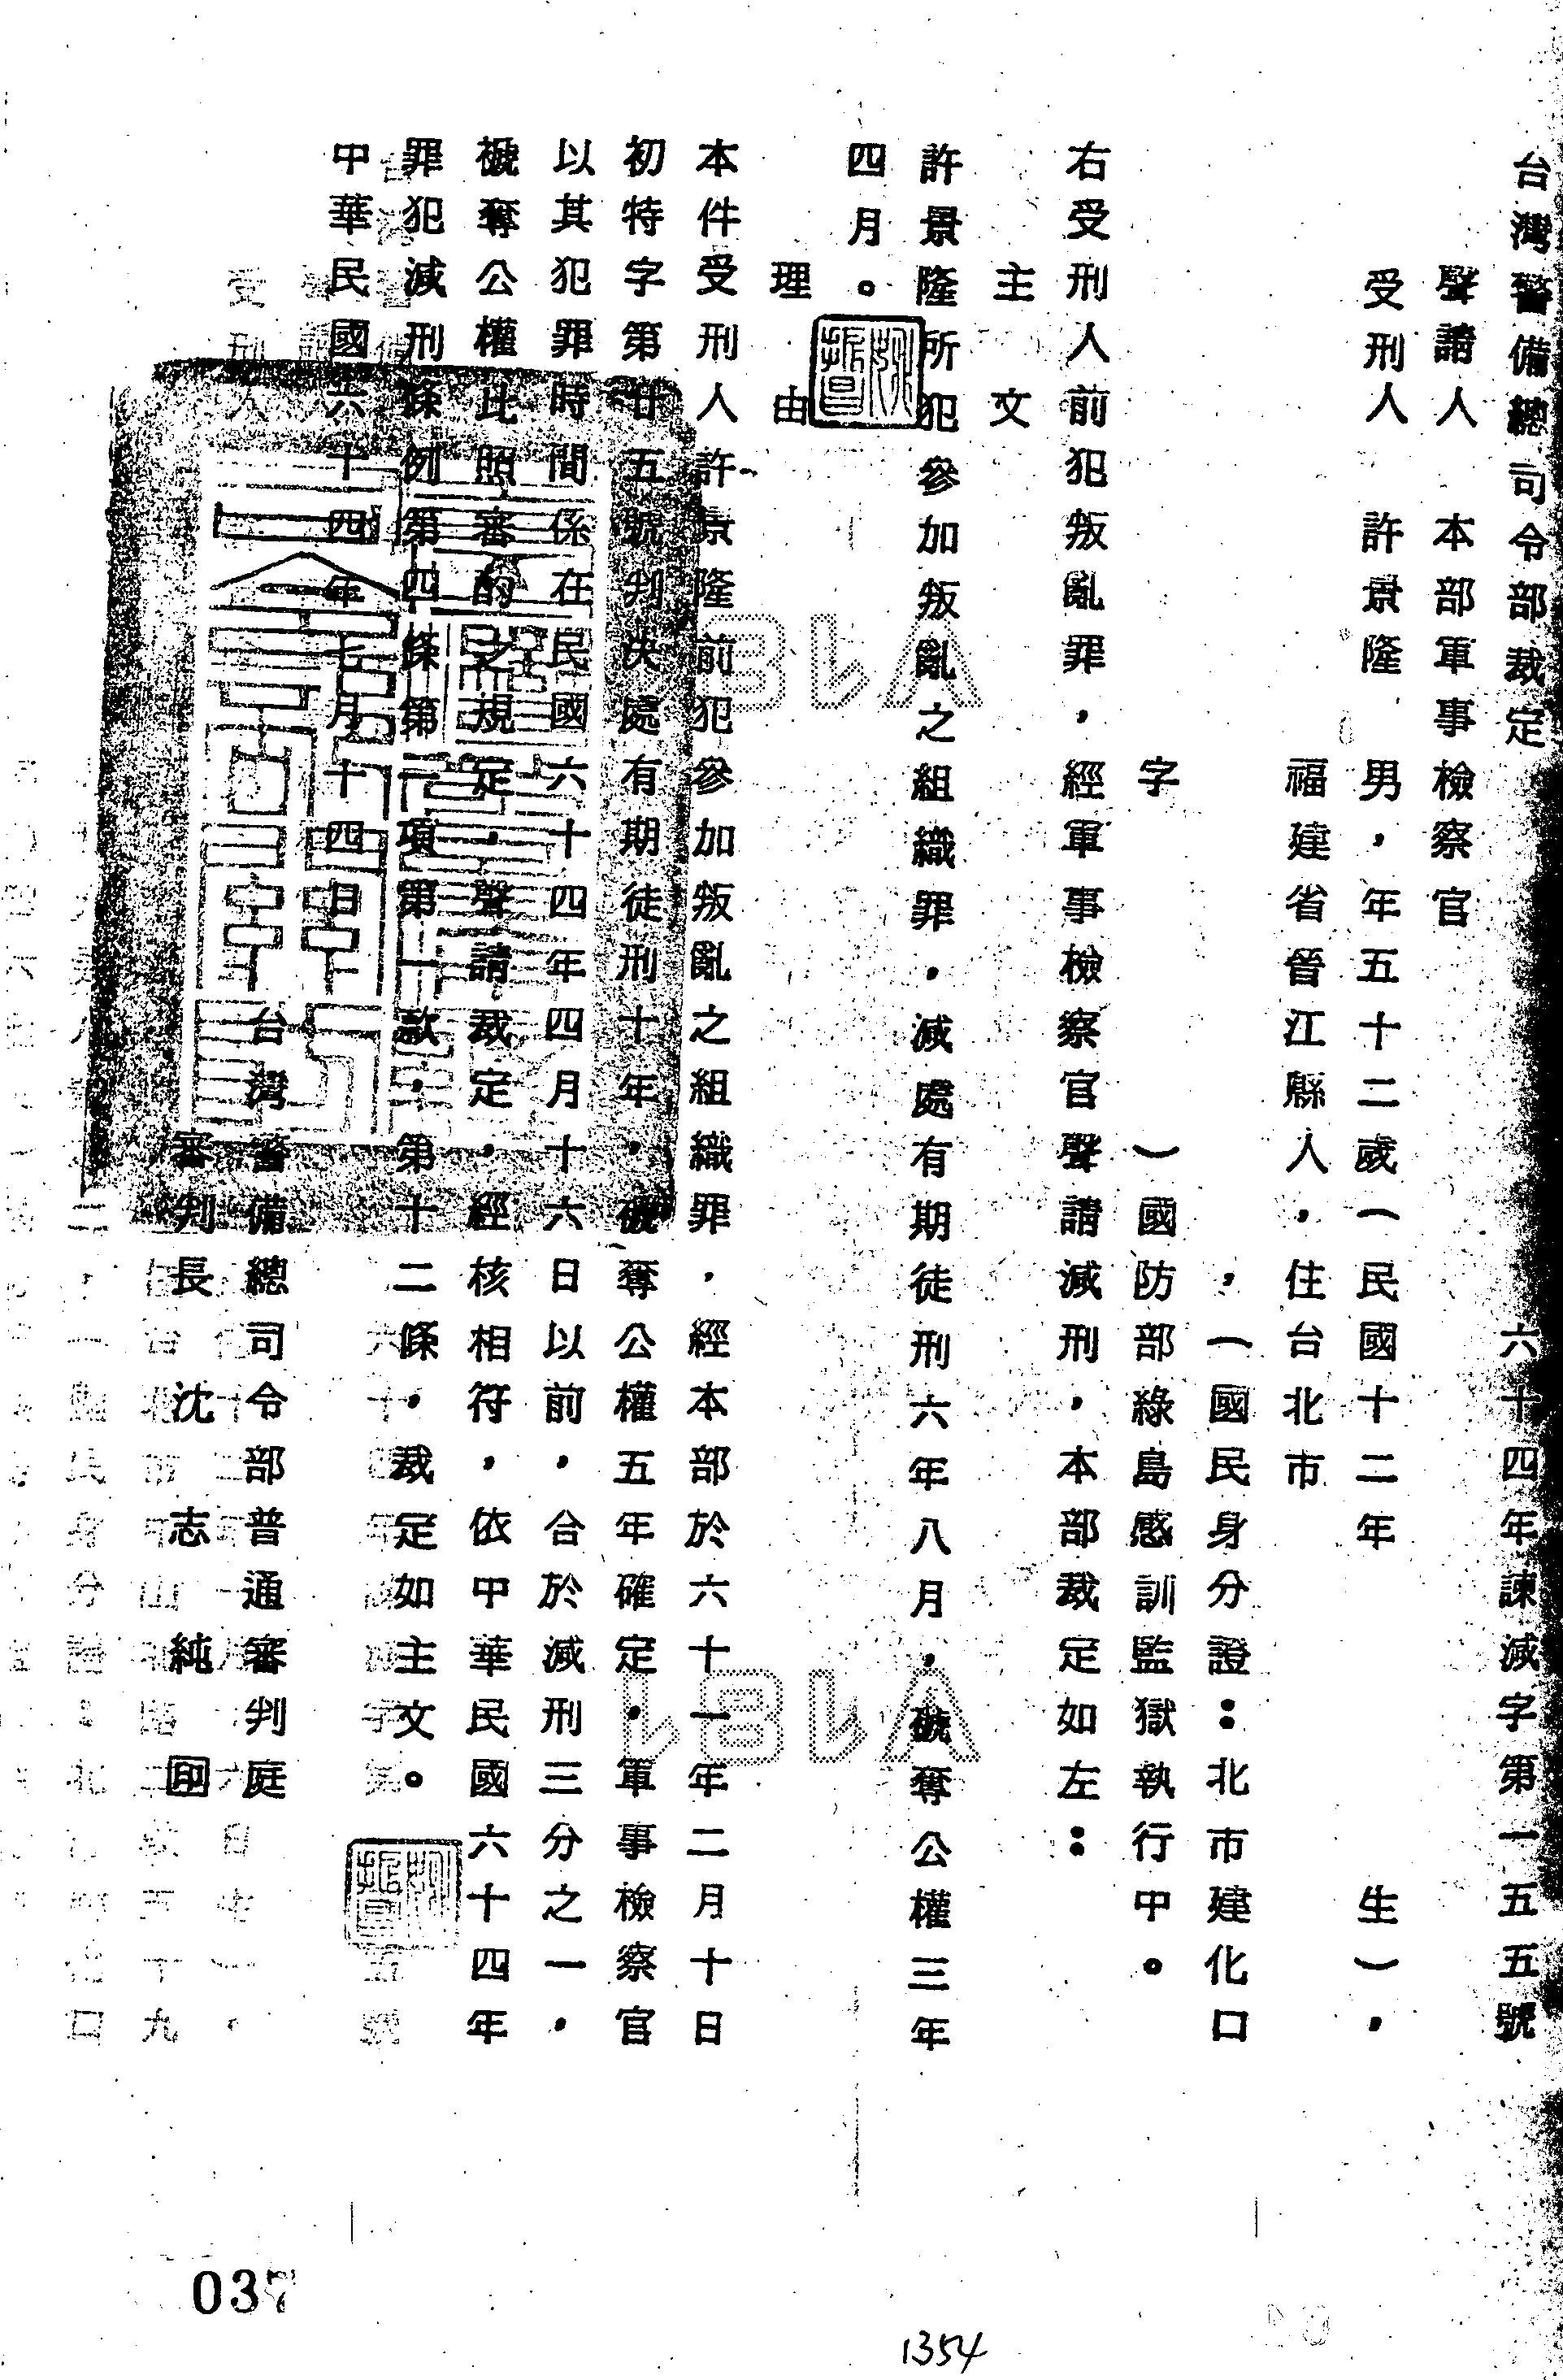 台灣警備總司令部裁定 六十四年諫減字第一五五號
聲請人 本部軍事檢察官
受刑人 許景隆 男，年五十二歲（民國十二年 生），
福建省晉江縣人，住台北市
，（國民身分證：北市建化口
字 ）國防部綠島感訓監獄執行中。
右受刑人前犯叛亂罪，經軍事檢察官聲請減刑，本部裁定如左：
主 文
許景隆所犯參加叛亂之組織罪，減處有期徒刑六年八月，褫奪公權三年
四月。
理 由
本件受刑人許景隆前犯參加叛亂之組織罪，經本部於六十一年二月十日
初特字第廿五號判決處有期徒刑十年，褫奪公權五年確定，軍事檢察官
以其犯罪時間係在民國六十四年四月十六日以前，合於減刑三分之一，
褫奪公權比照審酌之規定，聲請裁定，經核相符，依中華民國六十四年
罪犯減刑條例第四條第一項第一款，第十二條，裁定如主文。
中華民國六十四年七月十四日
台灣警備總司令部普通審判庭
審判長 沈志純 印
037
1354